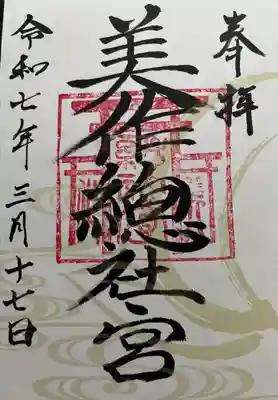 奉拝
美作總社宮
令和七年三月十七日